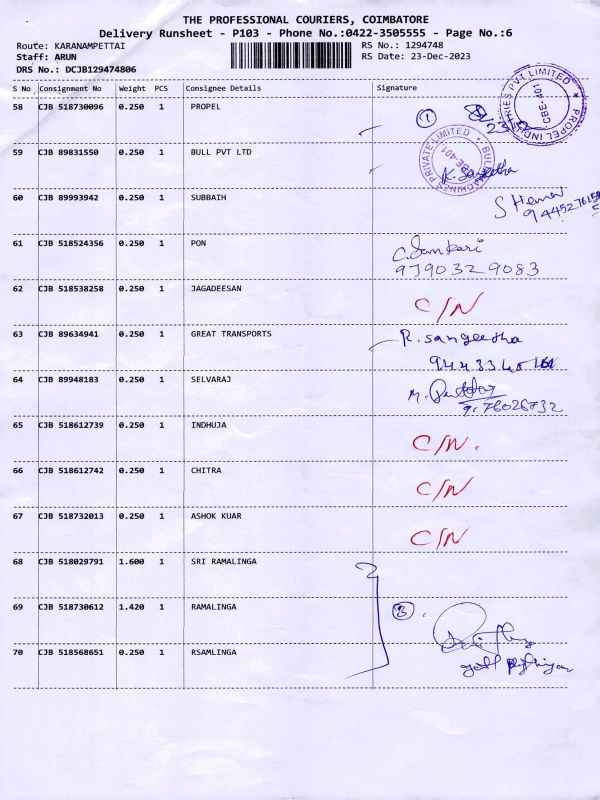 THE PROFESSIONAL COURIERS, COIMBATORE
Delivery Runsheet - P103 - Phone No.:0422-3505555 - Page No.:6
Route: KARANAMPETTAI RS No.: 1294748
Staff: ARUN RS Date: 23-Dec-2023
DRS No.: DCJB129474806
S No Consignment No Weight PCS Consignee Details Signature
58 CJB 518730096 0.250 1 PROPEL 1
PROPEL INDUSTRIES PVT LIMITED CBE-401
59 CJB 89831550 0.250 1 BULL PVT LTD
BULL MACHINES PRIVATE LIMITED CBE-401
60 CJB 89993942 0.250 1 SUBBAIH
61 CJB 518524356 0.250 1 PON
9790329083
62 CJB 518538258 0.250 1 JAGADEESAN C/N
63 CJB 89634941 0.250 1 GREAT TRANSPORTS R. sangeetha
64 CJB 89948183 0.250 1 SELVARAJ
65 CJB 518612739 0.250 1 INDHUJA C/N.
66 CJB 518612742 0.250 1 CHITRA C/N
67 CJB 518732013 0.250 1 ASHOK KUAR C/N
68 CJB 518029791 1.600 1 SRI RAMALINGA
69 CJB 518730612 1.420 1 RAMALINGA 3
70 CJB 518568651 0.250 1 RSAMLINGA